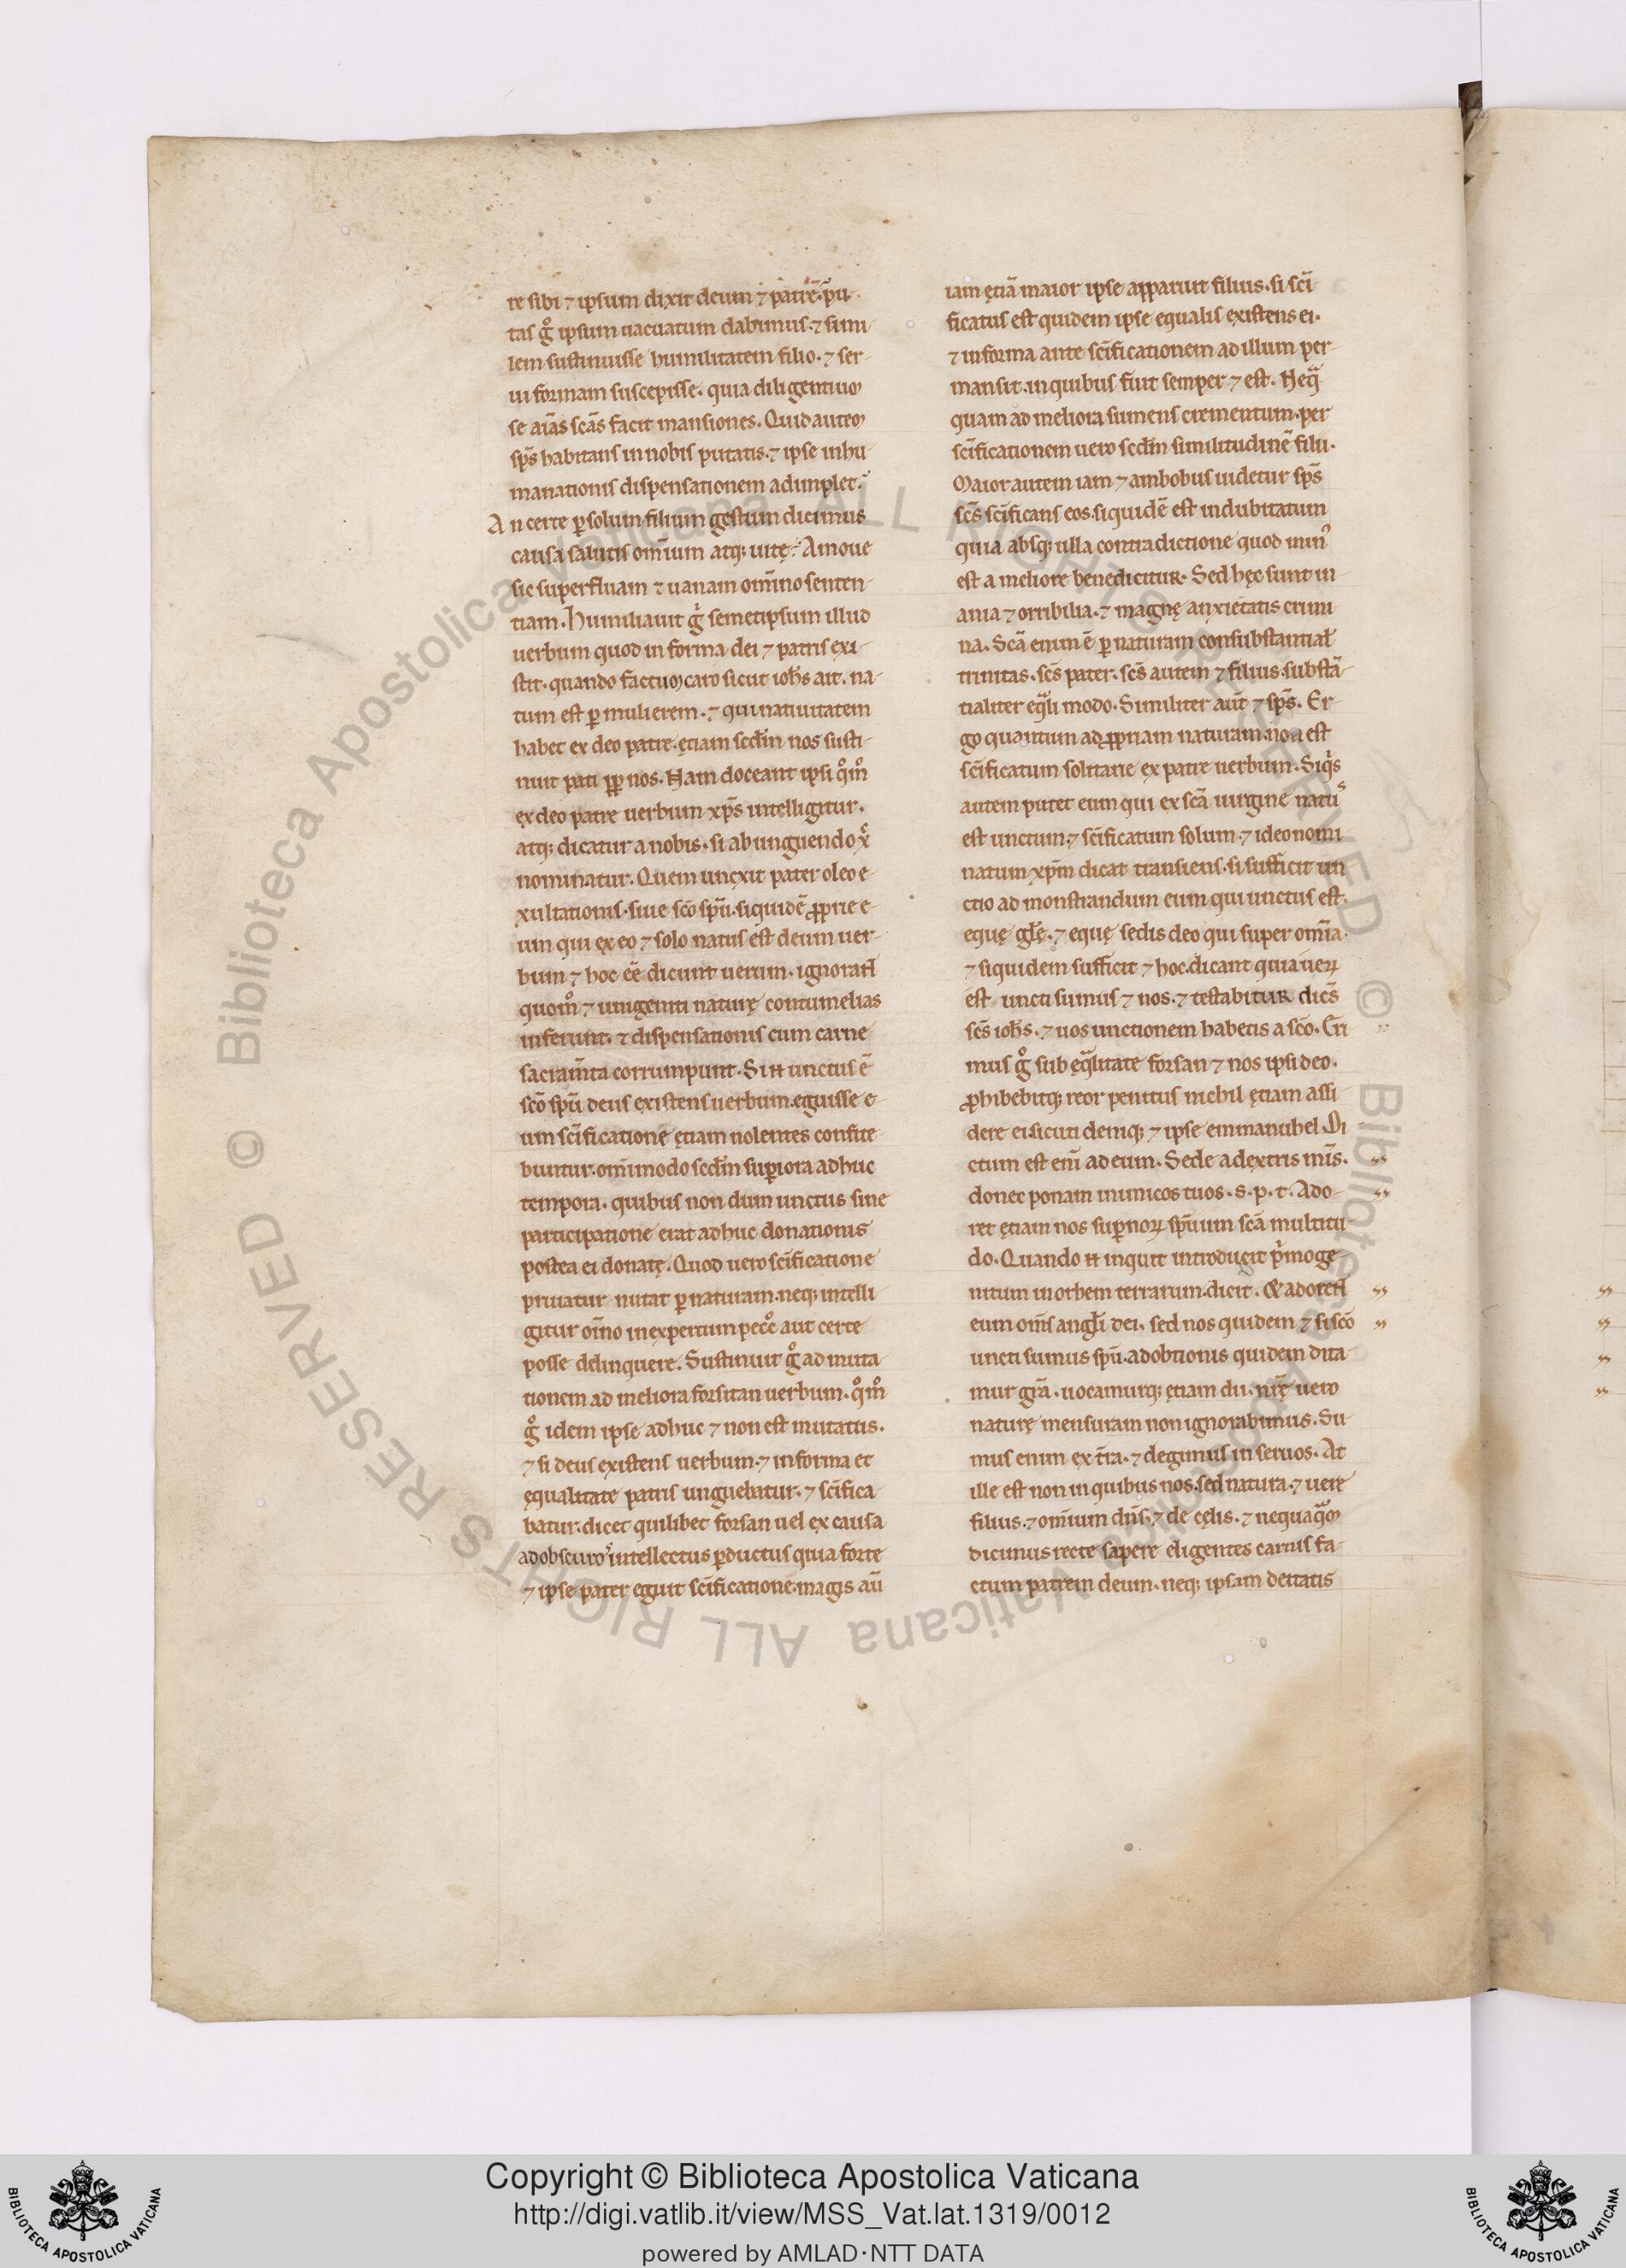 re sibi ⁊ ipsum dixit deum ⁊ patrē. pu-
tas gͦ ipsum uacuatum dabimus. ⁊ simi-
lem sustinuisse humilitatem filio. ⁊ ser-
ui formam suscepisse. quia diligentium
se aīas scās facit mansiones. Quid autem
sp̄s habitans in nobis putatis. ⁊ ipse inhu-
manationis dispensationem adimplet.
An certe ꝑ solum filium gestum dicimus
causā salutis om̄ium atq; uitę. Amoue
sic superfluam ⁊ uanam om̄ino senten-
tiam. Humiliauit gͥ semetipsum illud
uerbum quod in forma dei ⁊ patris exi-
stit. quando factum caro sicut ioh̄s ait. na-
tum est ꝑ mulierem. ⁊ qui natiuitatem
habet ex deo patre. ętiam scd̄m nos susti-
nuit pati ꝓp nos. Nam doceant ipsi qm̊
ex deo patre uerbum xp̄s intelligitur.
atq; dicatur a nobis. si ab unguendo xͨ
nominatur. Quem unxit pater oleo e-
xultationis. siue scō sp̄u. siquidē ꝓprie e-
um qui ex eo ⁊ solo natus est deum uer-
bum ⁊ hoc eē dicunt uerum. ignorant
quom̊ ⁊ unigeniti naturę contumelias
inferunt. ⁊ dispensationis cum carne
sacram̄ta corrumpunt. Si n̄ unctus ē
scō sp̄u deus existens uerbum. eguisse e-
um sc̄ificatione ętiam nolentes confite-
buntur. om̄imodo scd̄m suꝑiora adhuc
tempora. quibus non dum unctus sine
participatione erat adhuc donationis
postea ei donatę. Quod uero sc̄ificatione
priuatur nutat ꝑ naturam. neq; intelli-
gitur oīno inexpertum pecc̊ aut certe
posse delinquere. Sustinuit gͦ ad muta-
tionem ad meliora forsitan uerbum. qm̊
gͦ idem ipse adhuc ⁊ non est mutatus.
⁊ si deus existens uerbum. ⁊ in forma et
ęqualitate patris unguebatur. ⁊ sc̄ifica-
batur. dicet quilibet forsan uel ex causa
ad obscuros intellectus ꝑductus quia forte
⁊ ipse pater eguit sc̄ificatione. magis aū
iam ętiā maior ipse apparuit filius. si sc̄i
ficatus est quidem ipse equalis existens ei.
⁊ in forma ante sc̄ificationem ad illum per-
mansit. in quibus fuit semper ⁊ est. Neq̄
quam ad meliora sumens crementum. per
sc̄ificationem uero scd̄m similitudinē filii.
Maior autem iam ⁊ ambobus uidetur sp̄s
sc̄s sc̄ificans eos. siquidē est indubitatum
quia absq; ulla contradictione quod minꝰ
est a meliore benedicitur. Sed hęc sunt in-
ania ⁊ orribilia. ⁊ magnę anxietatis crimi-
na. Scā enim ē ꝑ naturam consubstantial̄
trinitas. sc̄s pater. sc̄s autem ⁊ filius. substā-
tialiter eq̄li modo. Similiter aūt ⁊ sp̄s. Er-
go quantum ad ꝓpriam naturam. non est
sc̄ificatum solitarie ex patre uerbum. Siqͥs
autem putet eum qui ex scā uirgine natuˢ
est unctum. ⁊ sc̄ificatum solum. ⁊ ideo nomi-
natum xp̄m dicat transiens. si sufficit un-
ctio ad monstrandum eum qui unctus est.
eque gl̄ę. ⁊ eque sedis deo qui super om̄ia.
⁊ siquidem sufficit ⁊ hoc. dicant quia ueꝝ
est uncti sumus ⁊ nos. ⁊ testabitur dicēs
sc̄s ioh̄s. ⁊ uos unctionem habetis a scō. Eri-
mus gͦ sub eq̄litate forsan ⁊ nos ipsi deo.
ꝓhibebitq; reor penitus nichil ętiam assi-
dere ei. sicuti deniq; ⁊ ipse emmanuhel. Di-
ctum est eni ad eum. Sede a dextris m̄is.
donec ponam inimicos tuos. s. p. t. Ado-
ret ętiam nos suꝑnoꝝ sp̄uum scā multitu-
do. Quando n̄ inquit introducit pͥmoge-
nitum in orbem terrarum. dicit. & adorent
eum om̄s angl̄i dei. sed nos quidem ⁊ si scō
uncti sumus sp̄u. adobtionis quidem dita-
mur gr̄a. uocamurq; ętiam dii. nr̄ę uero
naturę mensuram non ignorabimus. Su-
mus enim ex t̄ra. ⁊ degimus in seruos. At
ille est non in quibus nos. sed natura. ⁊ uere
filius. ⁊ om̄ium dn̄s. ⁊ de cęlis. ⁊ nequaq̄m
dicimus recte sapere eligentes carnis fa-
ctum patrem deum. neq; ipsam deitatis
Copyright © Biblioteca Apostolica Vaticana
http://digi.vatlib.it/view/MSS_Vat.lat.1319/0012
powered by AMLAD·NTT DATA
BIBLIOTECA APOSTOLICA VATICANA
BIBLIOTECA APOSTOLICA VATICANA
© Biblioteca Apostolica Vaticana ALL RIGHTS RESERVED
© Biblioteca Apostolica Vaticana ALL RIGHTS RESERVED